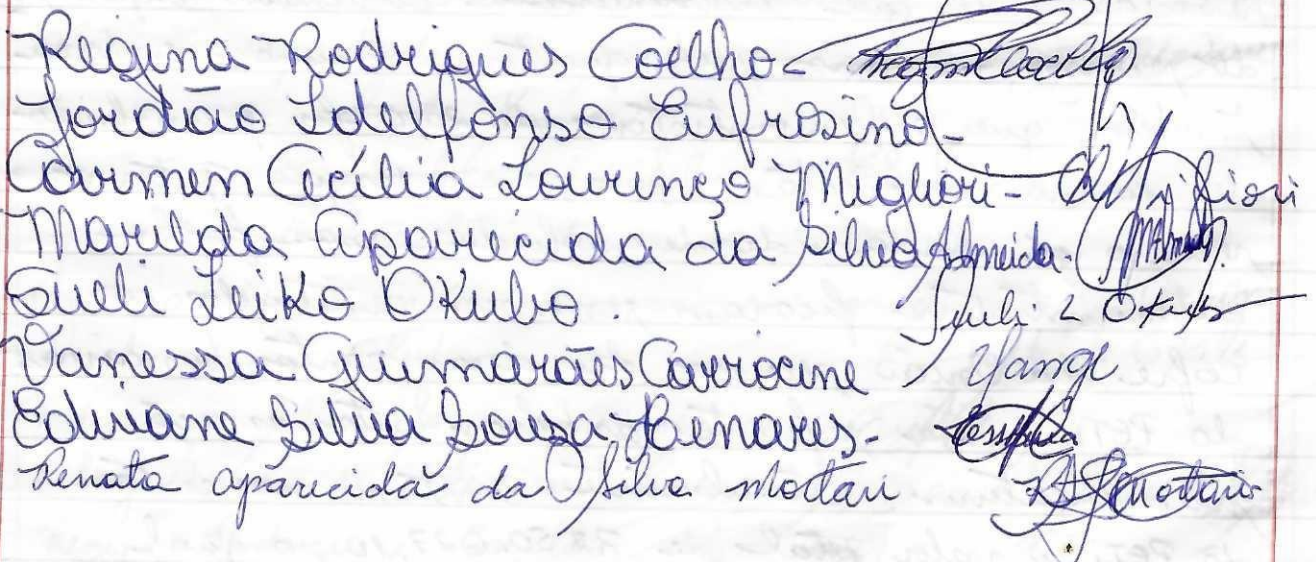 Regina Rodrigues Coelho - ReginaRCoelho
Jordão Idelfonso Eufrosino -
Carmen Cecília Lourenço Migliori - Migliori
Marilda Aparecida da Silva Almeida. MAlmeida.
Sueli Leiko Okubo. Sueli L Okubo
Vanessa Guimarães Carrocine
Edivane Silva Souza Henares -
Renata aparecida da Silva Mortari RASMortari